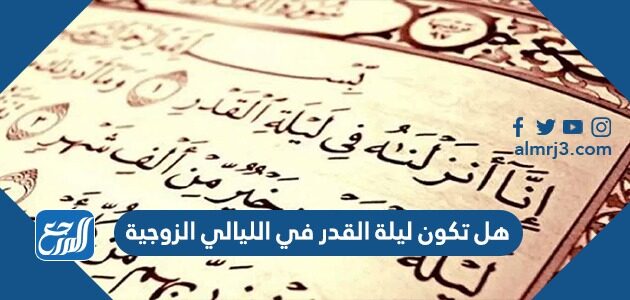 إِنَّآ أَنزَلْنَٰهُ فِي لَيْلَةِ ٱلْقَدْرِ ١ وَمَآ
لَيْلَةُ خَيْرٌ مِّنْ أَلْفِ شَهْرٍ ٣
almrj3.com
هل تكون ليلة القدر في الليالي الزوجية
المرجع